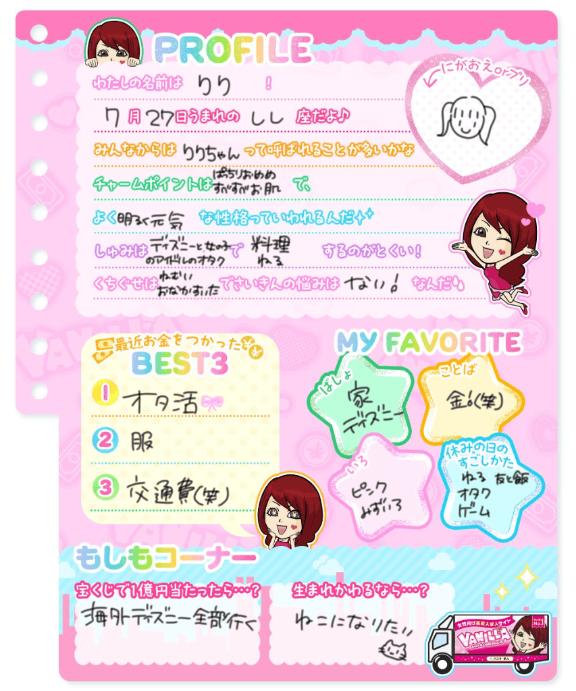 PROFILE
わたしの名前は りり !
にがおえorプリ
7月27日うまれの しし 座だよ♪
みんなからは りりちゃん って呼ばれることが多いかな
チャームポイントは ぱちりおめめ すべすべお肌 で、
よく 明るく元気 な性格っていわれるんだ
しゅみは ディズニーと女の子のアイドルのオタク で 料理 ねる するのがとくい!
くちぐせは ねむい おなかすいた でさいきんの悩みは ない! なんだ
最近お金をつかった
BEST3
1 オタ活
2 服
3 交通費(笑)
MY FAVORITE
ばしょ
家
ディズニー
ことば
金!(笑)
いろ
ピンク
みずいろ
休みの日の
すごしかた
ねる 友と飯
オタク
ゲーム
もしもコーナー
宝くじで1億円当たったら…?
海外ディズニー全部行く
生まれかわるなら…?
ねこになりたい
VANILLA